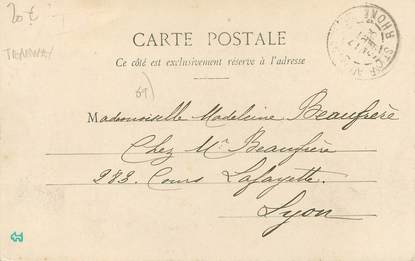 20€
TRAMWAY
CARTE POSTALE
Ce côté est exclusivement réservé à l'adresse
69)
RHONE
Mademoiselle Madeleine Beaufrère
Chez Mr Beaufrère
283. Cours Lafayette.
Lyon